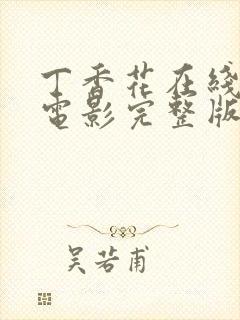 丁香花在线
电影完整版
吴若甫